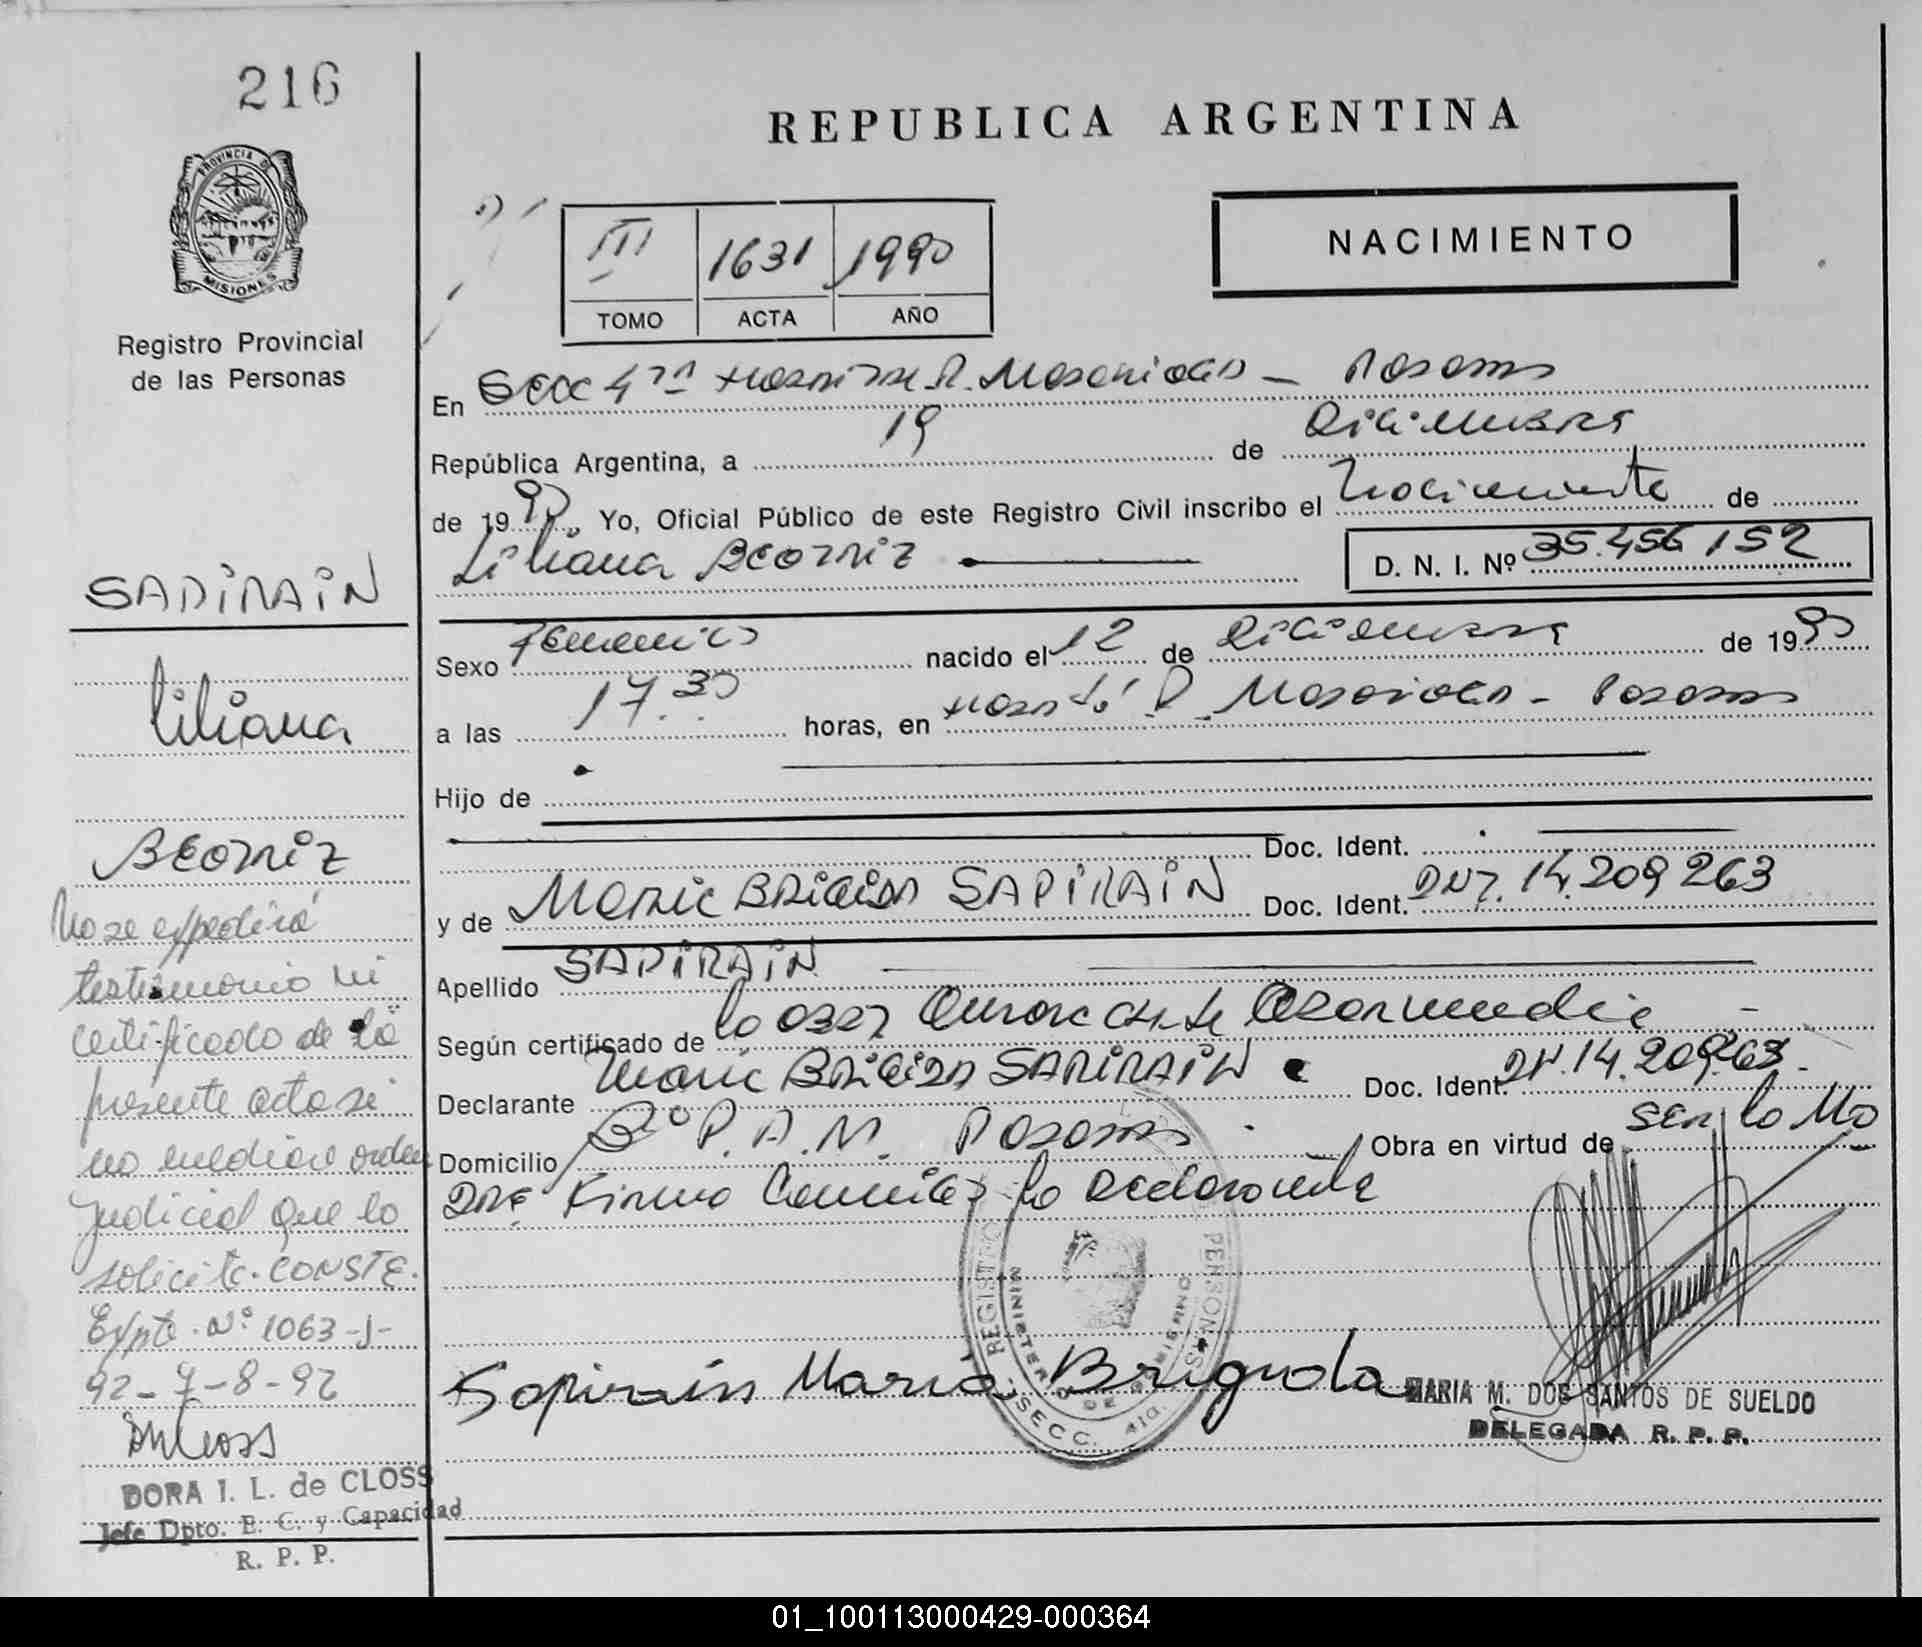 216
REPUBLICA ARGENTINA
PROVINCIA DE
MISIONES
Registro Provincial
de las Personas
III 1631 1990
TOMO ACTA AÑO
NACIMIENTO
En Secc 4ta R. Madariaga - Posadas
República Argentina, a 19 de Diciembre
de 1990, Yo, Oficial Público de este Registro Civil inscribo el Nacimiento de
Liliana Beatriz
D. N. I. Nº 35.456 152
Sexo Femenino nacido el 12 de Diciembre de 1990
a las 17.30 horas, en R. Madariaga - Posadas
Hijo de
Doc. Ident.
y de Maria Brigida SAPIRAIN Doc. Ident. DNI. 14.209 263
Apellido SAPIRAIN
Según certificado de la
Declarante Maria Brigida SAPIRAIN Doc. Ident. DNI. 14.209.263.
Domicilio Bº P.A.M. Posadas. Obra en virtud de ser la Ma
dre Firma la declarante
REGISTRO PERSONAS
MINISTERIO DE
SECC. 4ta.
Sapirain Maria Brigida
MARIA M. DOS SANTOS DE SUELDO
DELEGADA R. P. P.
SAPIRAIN
Liliana
Beatriz
No se expedirá
testimonio ni
certificado de la
presente acta si
no mediare orden
judicial que lo
solicite. CONSTE.
Expte. Nº 1063-J-
92- 7-8-92
DORA I. L. de CLOSS
Jefe Dpto. E. C. y Capacidad
R. P. P.
01_100113000429-000364